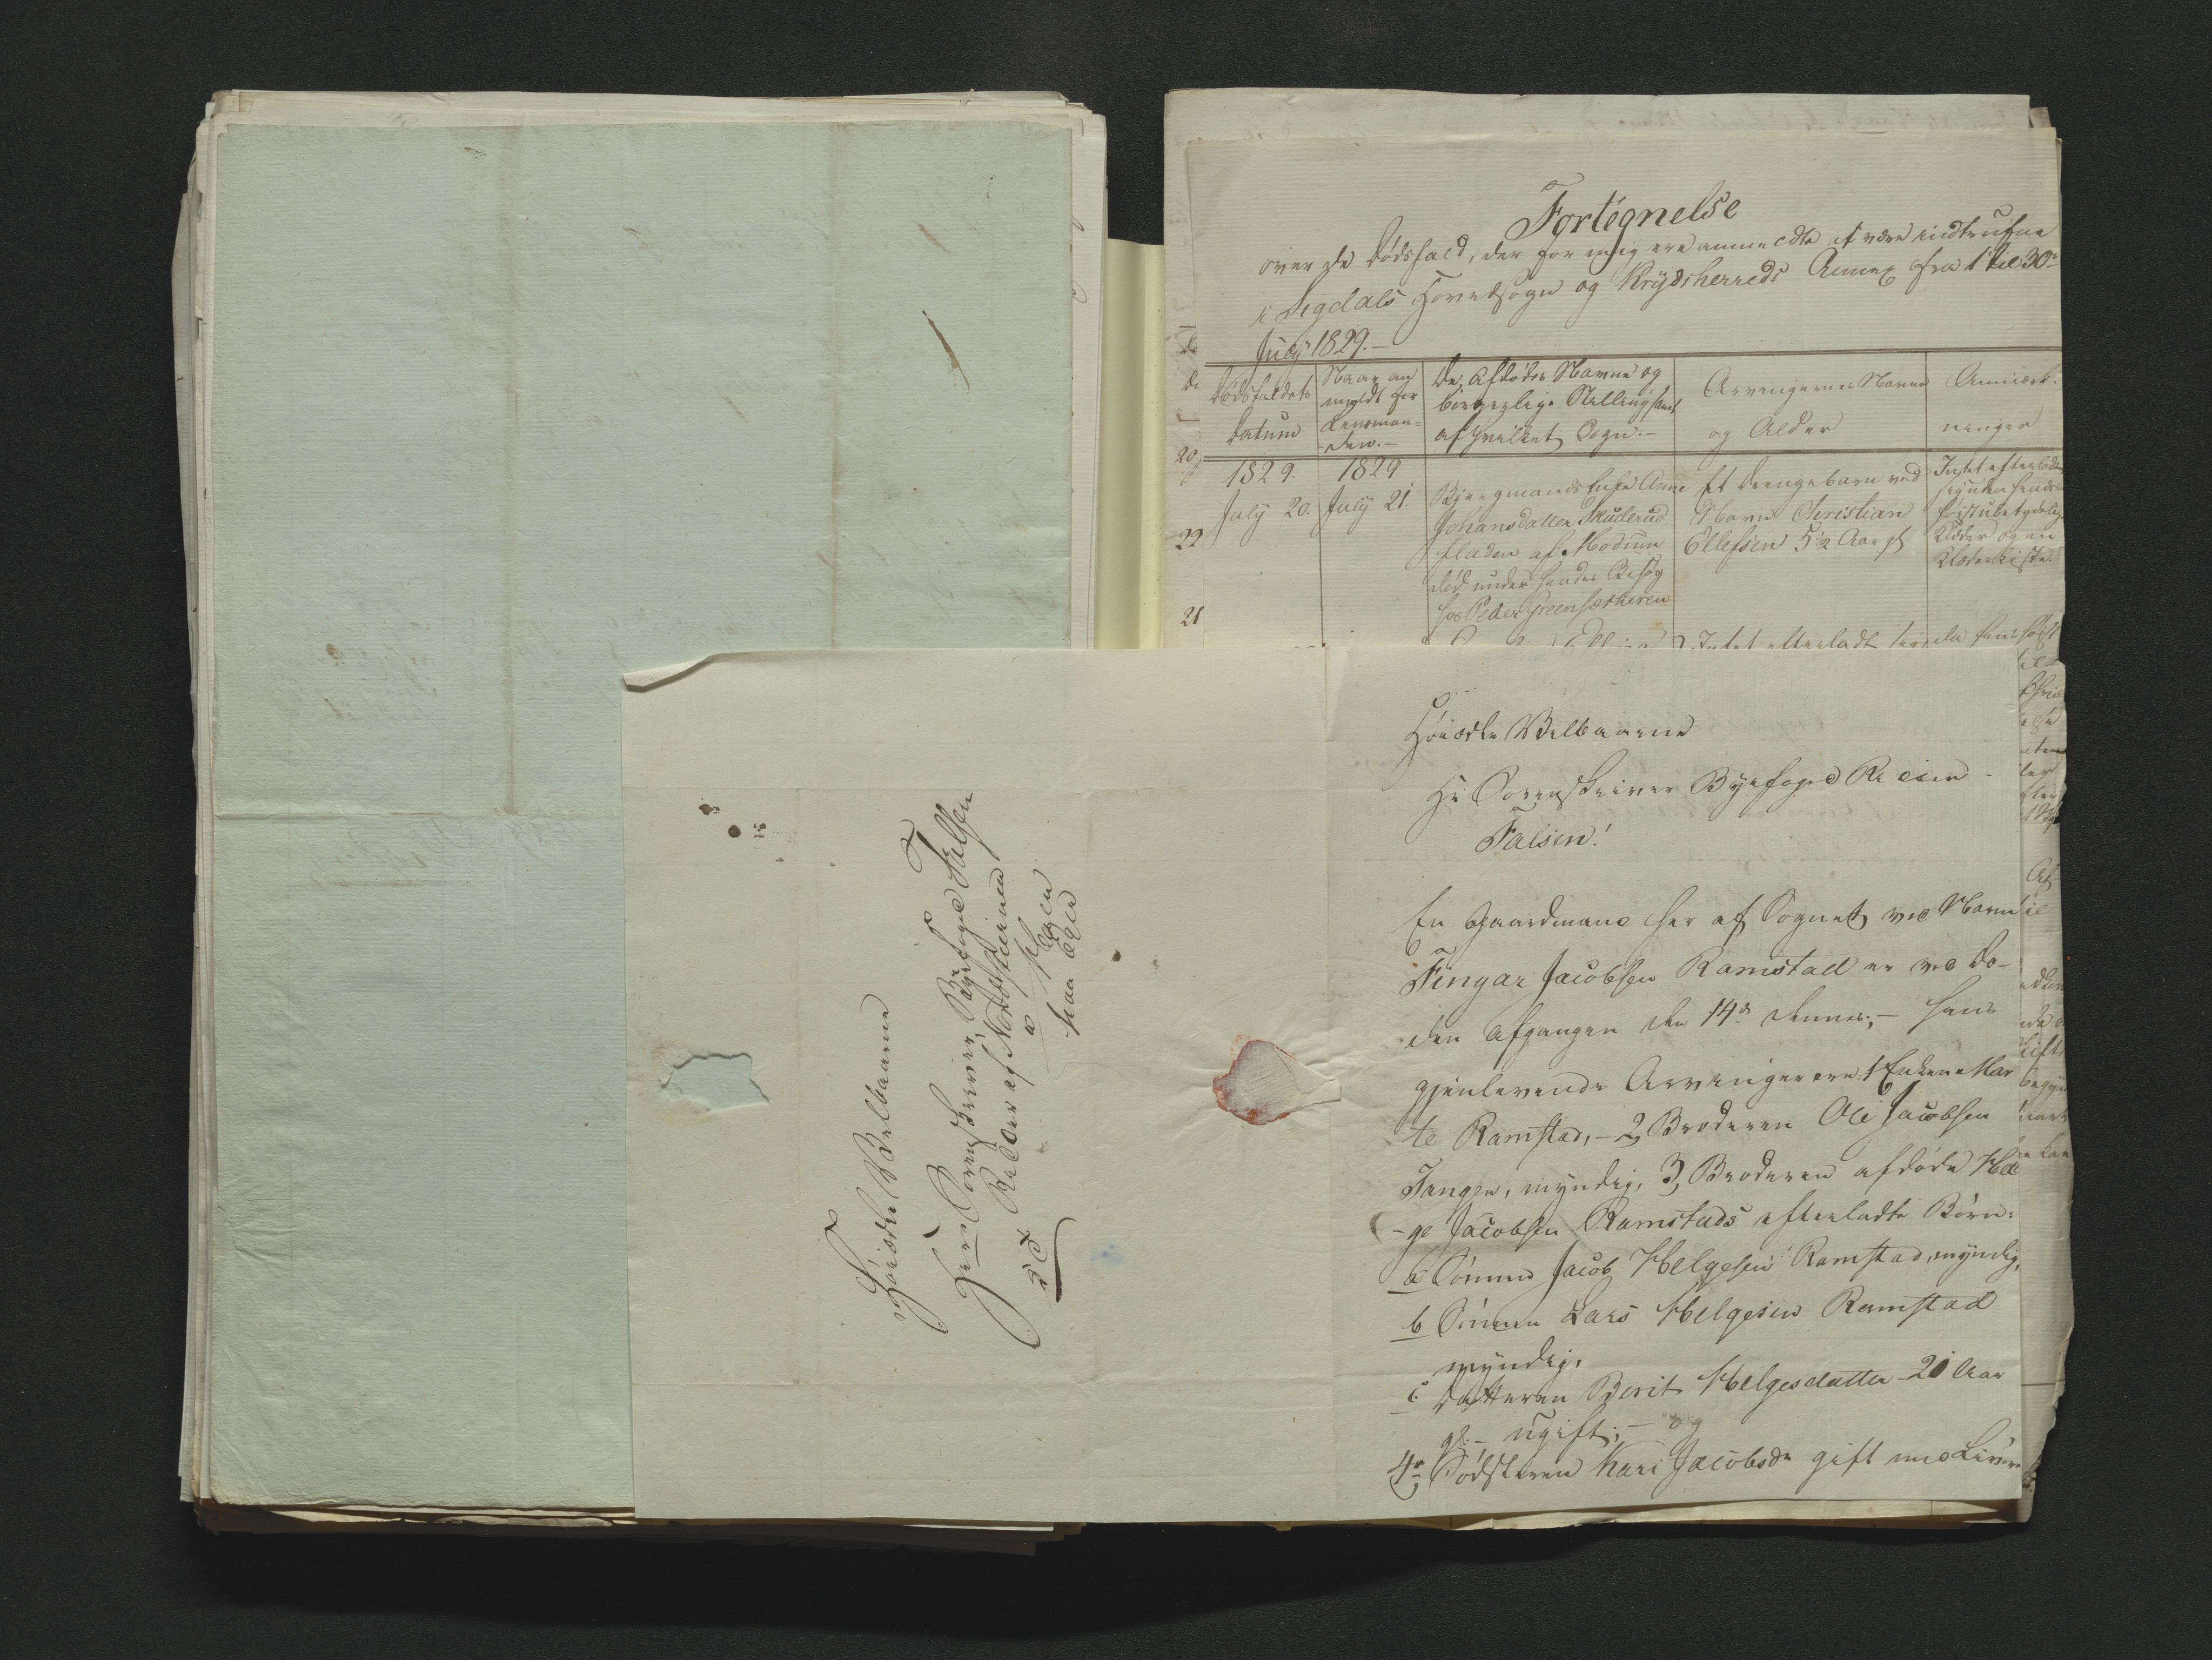 Fortegnelse
over de Dødsfald, der for mig ere anmeldte at være indtrufne
i Sigdals Hovedsogn og Krydsherreds Annex fra 1 til 30te
July 1829.-
Dødsfaldets
Datum
Naar an
meldt for
Lensman-
den.-
De Afdødes Navne og
borgerlige Stilling samt
af hvilket Sogn.-
Arvingernes Navne
og Alder
Anmærk-
ninger
1829.
July 20.
1829
July 21.
Bjergmands Enke Anne
Johansdatter Skuterud
fladen af Modum
død under hendes Besøg
hos Peder Greensætheren
Et Drengebarn ved
Navn Christian
Ellefsen 5 1/2 Aar gl
Intet efterladt
Klæder og en
Klædekiste.
20
22
21
Intet efterladt
Høiædle Velbaarne
Hr Sorenskriver Byefoged Ridder
Falsen!
En Gaardmand her af Sognet ved Navn
Fingar Jacobsen Ramstad er ved Dø-
den afgangen den 14de dennes;- hans
gjenlevende Arvinger ere: 1 Enken Mar
te Ramstad,- 2, Broderen Ole Jacobsen
Tangen, myndig, 3, Broderen afdøde Hel
-ge Jacobsen Ramstads efterladte Børn:
a Sønnen Jacob Helgesen Ramstad, myndig,
b Sønnen Lars Helgesen Ramstad
myndig,
c Datteren Berit Helgesdatter 20 Aar
gl.- ugift;- og
4de Södsteren Kari Jacobsdr gift med
Høiædle Velbaarne
Herr Sorenskriver, Byefoged Falsen
Ridder af Nordstjernen
paa Eger